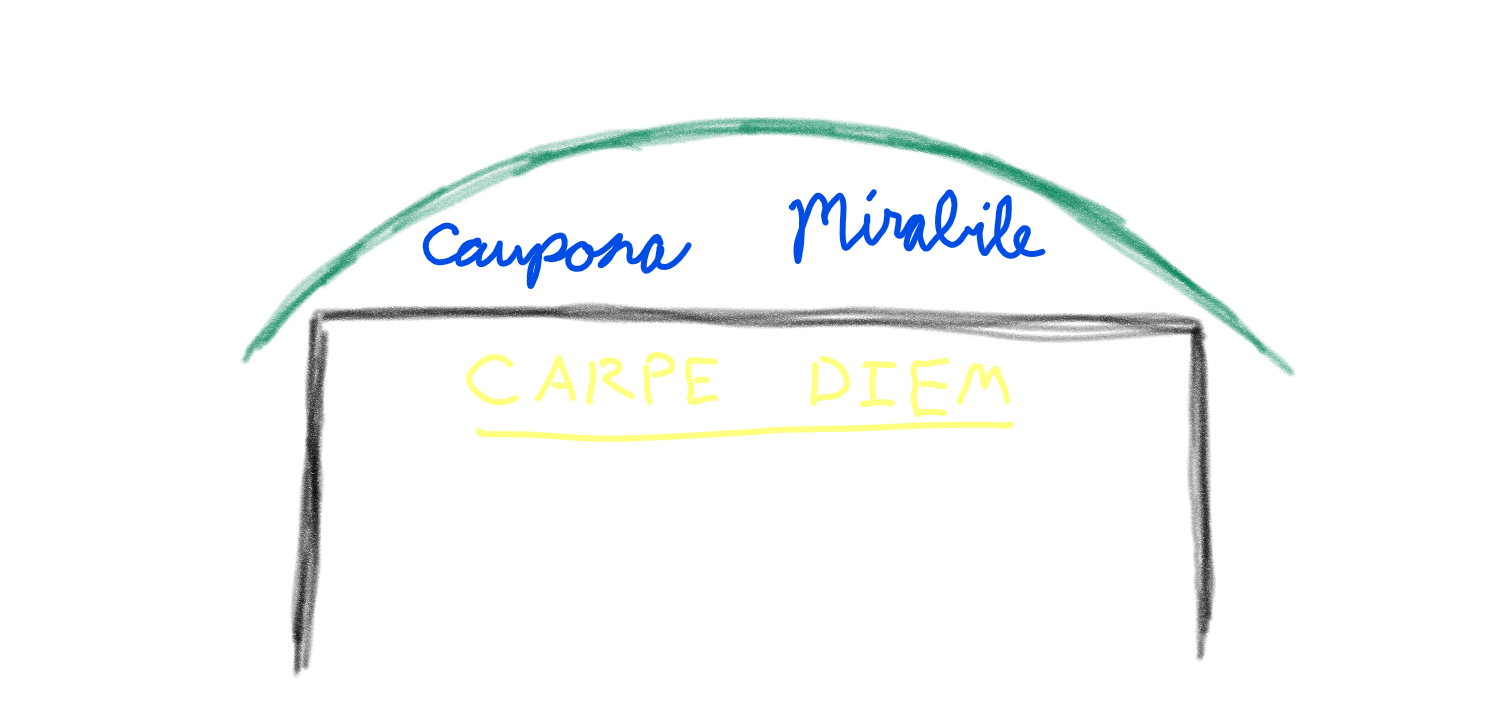 Caupona Mirabile
CARPE DIEM